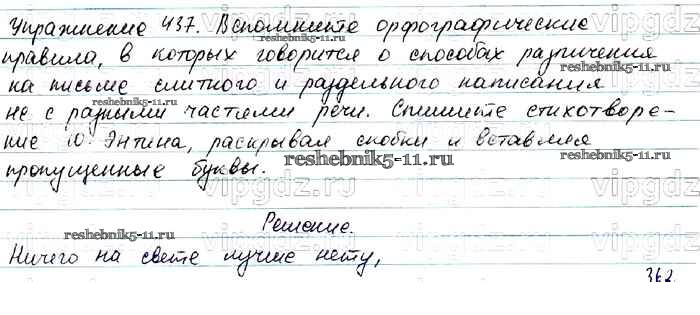 Упражнение 437. Вспомните орфографические
правила, в которых говорится о способах различения
на письме слитного и раздельного написания
не с разными частями речи. Спишите стихотворе-
ние Ю. Энтина, раскрывая скобки и вставляя
пропущенные буквы.
Решение.
Ничего на свете лучше нету,
362
vipgdz.ru
reshebnik5-11.ru
reshebnik5-11.ru
reshebnik5-11.ru
reshebnik5-11.ru
reshebnik5-11.ru